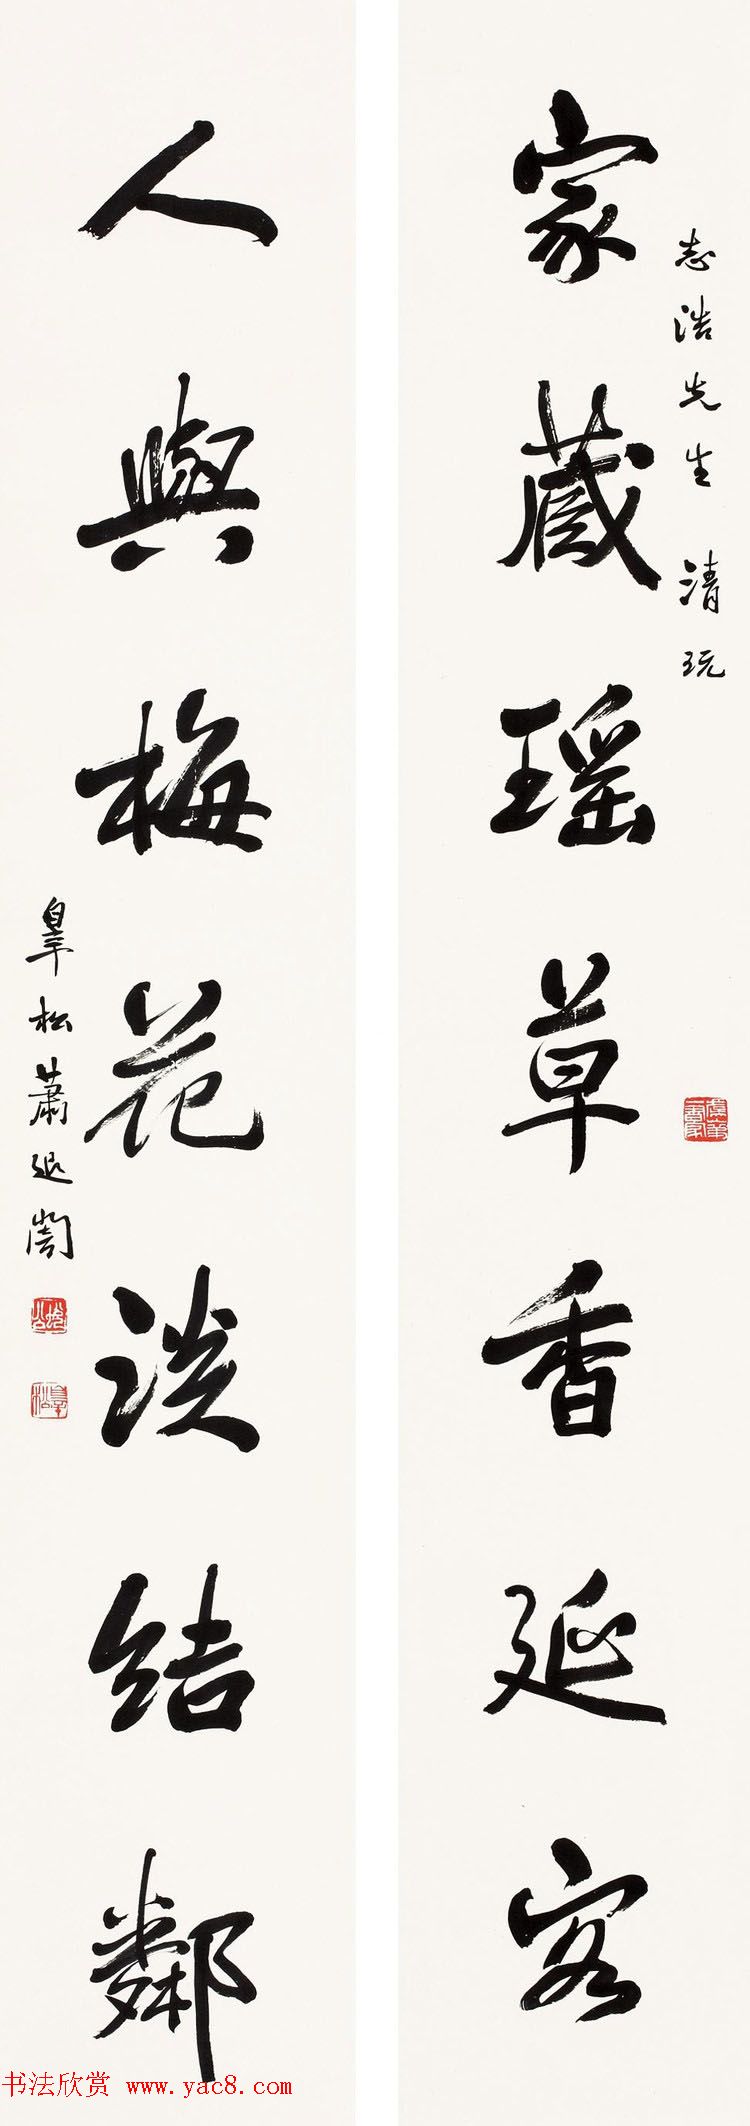 志浩先生 清玩
家藏瑶草香延客
人與梅花淡結鄰
皐松蕭退闇
书法欣赏 www.yac8.com